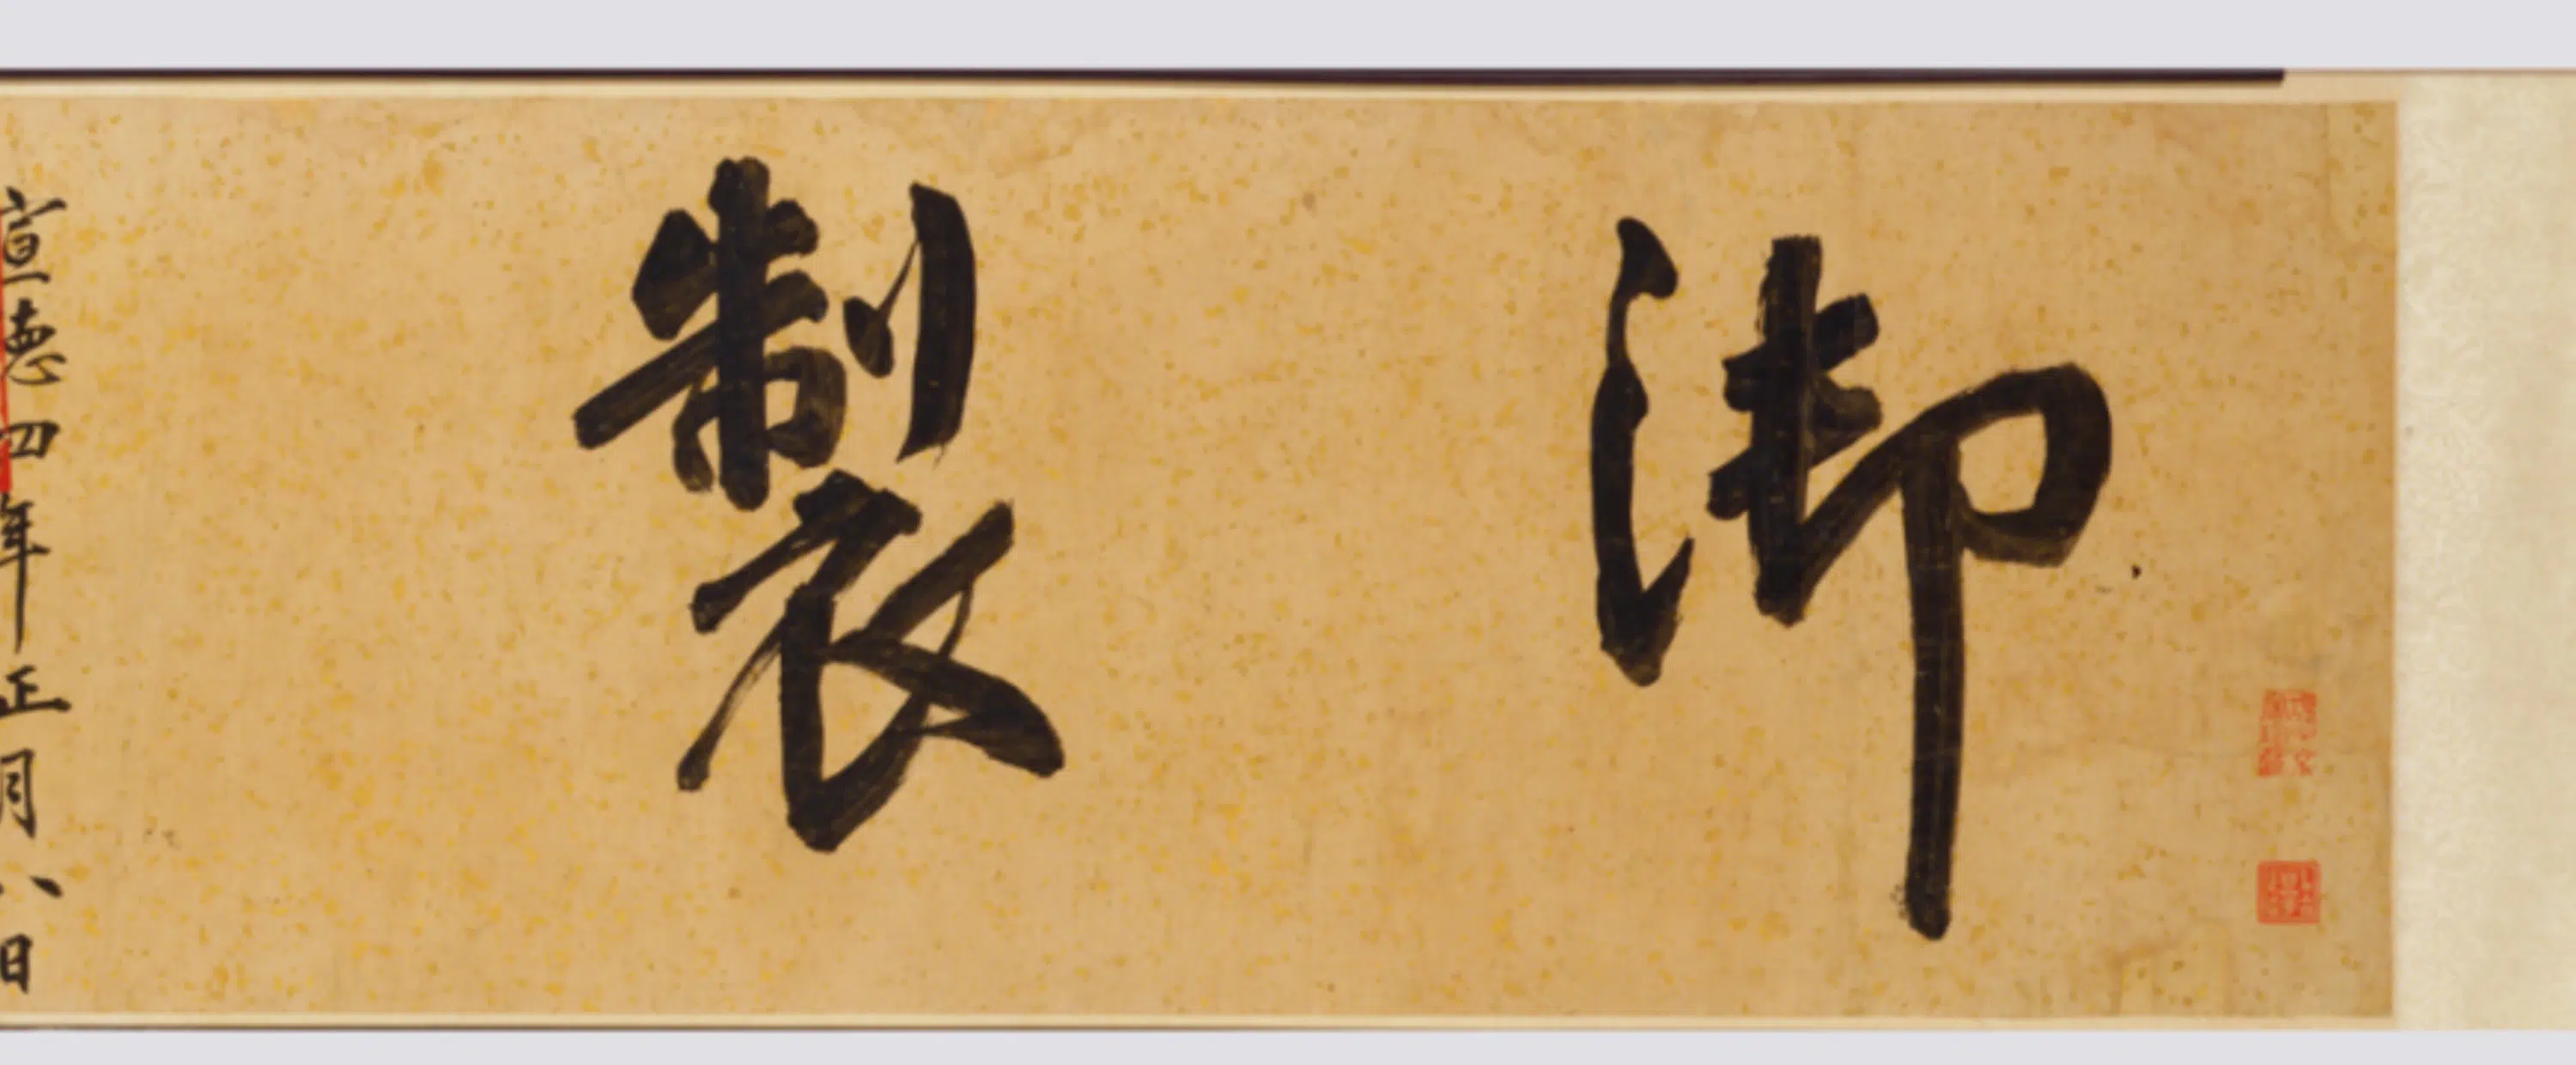 御製
宣德四年正月八日